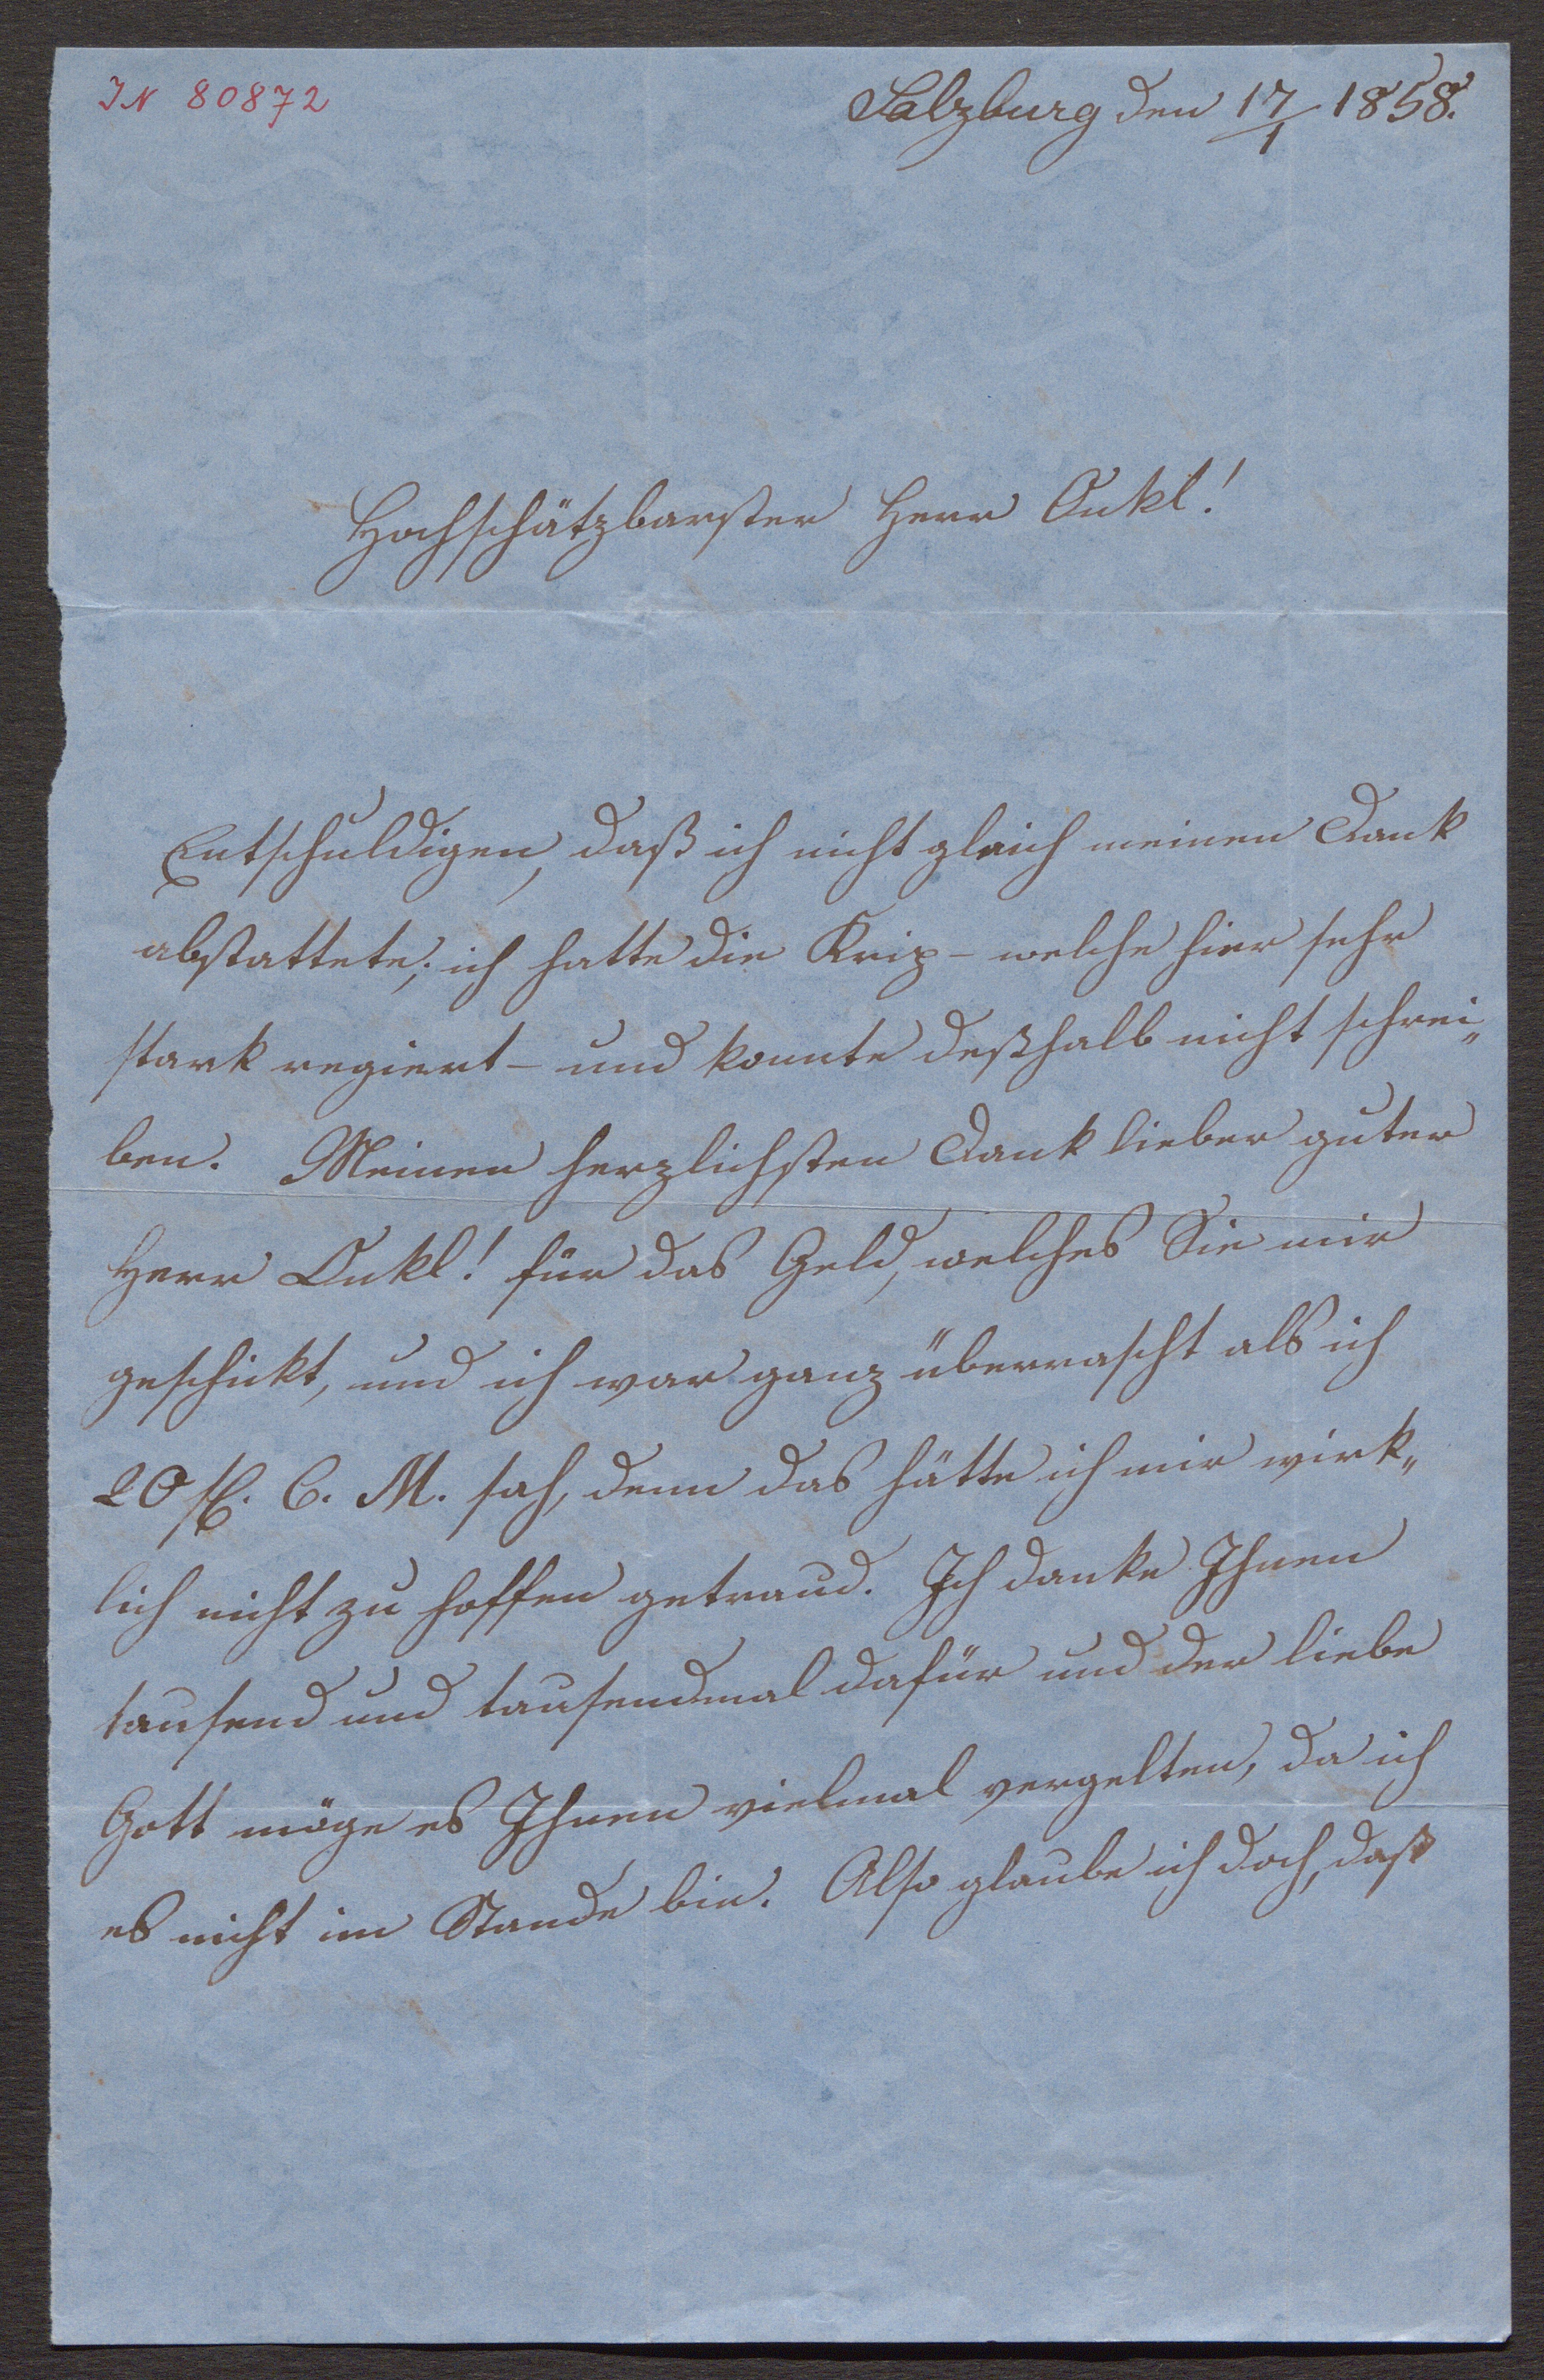 IN 80872
Salzburg den 17/1 1858.
Hochschätzbarster Herr Onkl!
Entschuldigen, daß ich nicht gleich meinen Dank
abstattete; ich hatte die Krip - welche hier sehr
stark regiert - und konnte deßhalb nicht schrei„
ben. Meinen herzlichsten Dank lieber guter
Herr Onkl! für das Geld, welches Sie mir
geschickt, und ich war ganz überrascht als ich
20 fl. C. M. sah, denn das hätte ich mir wirk„
lich nicht zu hoffen getraud. Ich danke Ihnen
tausend und tausendmal dafür und der liebe
Gott möge es Ihnen vielmal vergelten, da ich
es nicht im Stande bin. Also glaube ich doch, daß